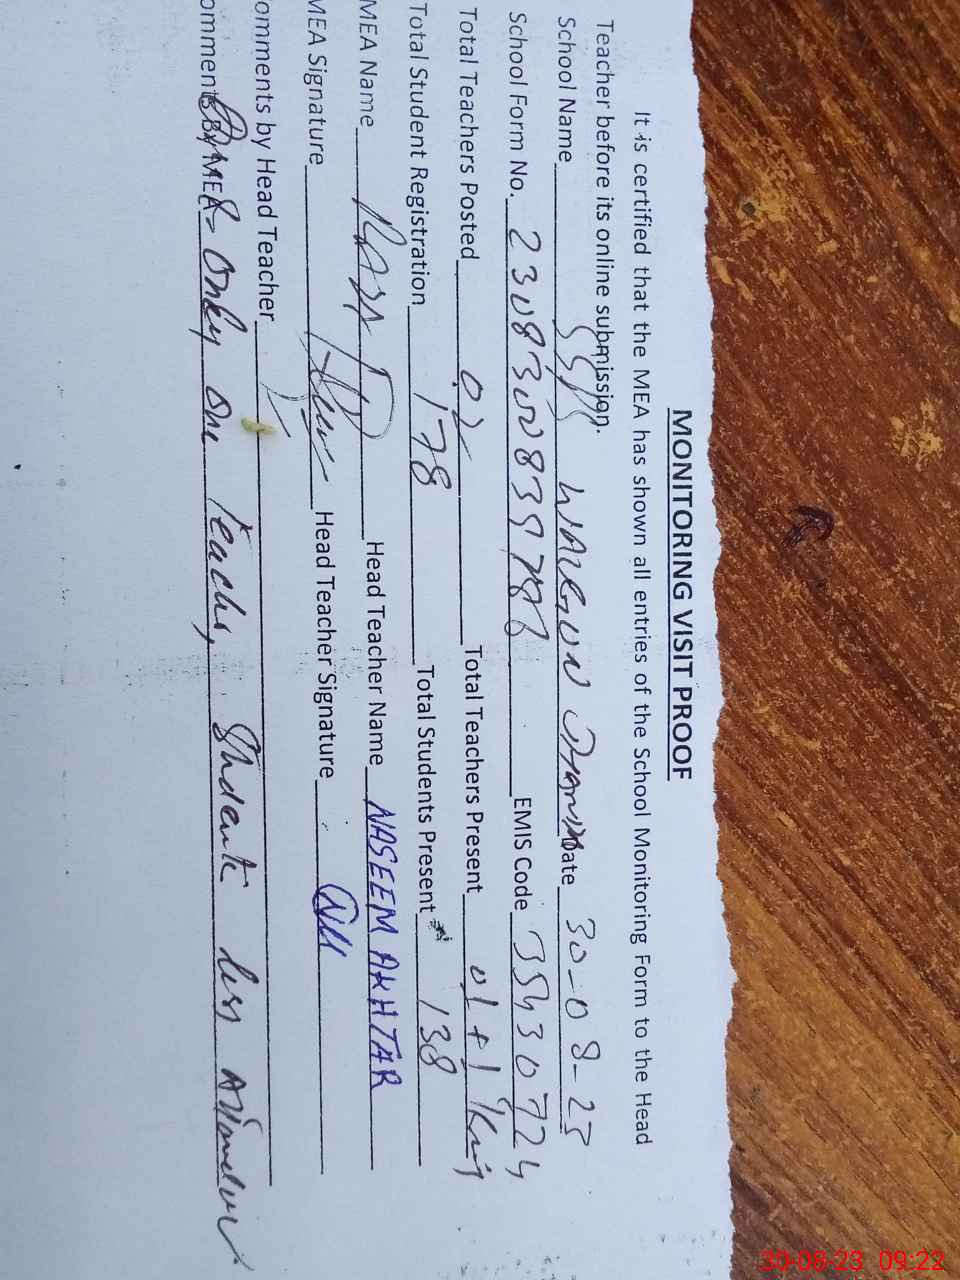 MONITORING VISIT PROOF
It is certified that the MEA has shown all entries of the School Monitoring Form to the Head
Teacher before its online submission.
School Name GGPS Date 30-08-23
School Form No. EMIS Code
Total Teachers Posted 02 Total Teachers Present 01 + 1
Total Student Registration 178 Total Students Present 138
MEA Name Head Teacher Name NASEEM AKHTAR
MEA Signature Head Teacher Signature
omments by Head Teacher
omments By MEA Only one teacher, Students less
30-08-23 09:22